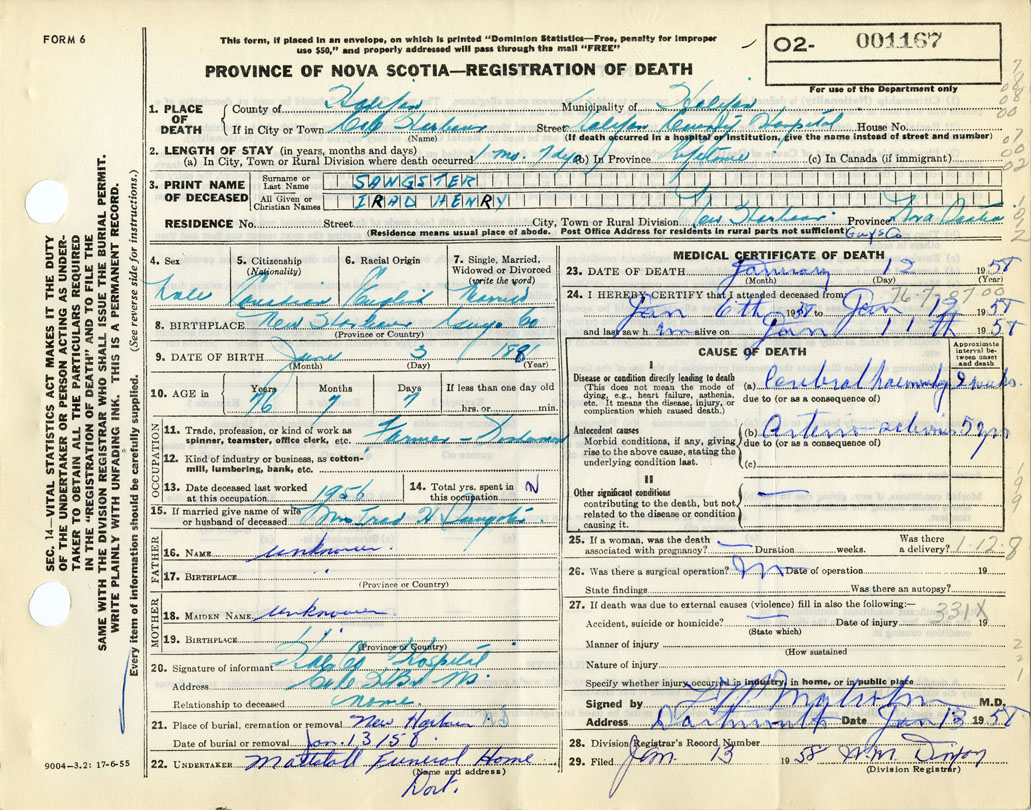 FORM 6
This form, if placed in an envelope, on which is printed "Dominion Statistics—Free, penalty for improper
use $50," and properly addressed will pass through the mail "FREE"
02- 001167
For use of the Department only
PROVINCE OF NOVA SCOTIA—REGISTRATION OF DEATH
1. PLACE OF DEATH
County of Halifax Municipality of Halifax
If in City or Town Cole Harbour Street Halifax County Hospital House No.
(Name) (If death occurred in a hospital or institution, give the name instead of street and number)
2. LENGTH OF STAY (in years, months and days)
(a) In City, Town or Rural Division where death occurred 1 mo. 7 dys (b) In Province Lifetime (c) In Canada (if immigrant)
3. PRINT NAME OF DECEASED
Surname or Last Name SANGSTER
All Given or Christian Names IRAD HENRY
RESIDENCE No. Street City, Town or Rural Division New Harbour Province Nova Scotia
(Residence means usual place of abode. Post Office Address for residents in rural parts not sufficient) Guys Co
4. Sex Male
5. Citizenship (Nationality) Canadian
6. Racial Origin English
7. Single, Married, Widowed or Divorced (write the word) Married
8. BIRTHPLACE New Harbour Guys Co
(Province or Country)
9. DATE OF BIRTH June 3 1881
(Month) (Day) (Year)
10. AGE in Years 76 Months 7 Days 7 If less than one day old hrs. or min.
OCCUPATION
11. Trade, profession, or kind of work as
spinner, teamster, office clerk, etc. Farmer -
12. Kind of industry or business, as cotton-
mill, lumbering, bank, etc.
13. Date deceased last worked
at this occupation 1956
14. Total yrs. spent in
this occupation
15. If married give name of wife
or husband of deceased Mrs Irad H Sangster
FATHER
16. NAME unknown
17. BIRTHPLACE "
(Province or Country)
MOTHER
18. MAIDEN NAME unknown
19. BIRTHPLACE "
(Province or Country)
20. Signature of informant Hospital
Address
Relationship to deceased none.
21. Place of burial, cremation or removal New Harbour N.S
Date of burial or removal Jan. 13/58
22. UNDERTAKER Mattatall Funeral Home
(Name and address)
Dart.
9004—3.2: 17-6-55
SEC. 14—VITAL STATISTICS ACT MAKES IT THE DUTY
OF THE UNDERTAKER OR PERSON ACTING AS UNDER-
TAKER TO OBTAIN ALL THE PARTICULARS REQUIRED
IN THE "REGISTRATION OF DEATH" AND TO FILE THE
SAME WITH THE DIVISION REGISTRAR WHO SHALL ISSUE THE BURIAL PERMIT.
WRITE PLAINLY WITH UNFADING INK. THIS IS A PERMANENT RECORD.
Every item of information should be carefully supplied. (See reverse side for instructions.)
MEDICAL CERTIFICATE OF DEATH
23. DATE OF DEATH January 12 1958
(Month) (Day) (Year)
24. I HEREBY CERTIFY that I attended deceased from:
Jan 6th 1958 to Jan 12 1958
and last saw him alive on Jan 11th 1958
CAUSE OF DEATH
Approximate interval between onset and death
I
Disease or condition directly leading to death
(This does not mean the mode of
dying, e.g., heart failure, asthenia,
etc. It means the disease, injury, or
complication which caused death.)
(a) Cerebral haemorrhage
due to (or as a consequence of)
Antecedent causes
Morbid conditions, if any, giving
rise to the above cause, stating the
underlying condition last.
(b) Arterio-sclerosis 5 yrs
due to (or as a consequence of)
(c)
II
Other significant conditions
contributing to the death, but not
related to the disease or condition
causing it.
25. If a woman, was the death
associated with pregnancy? Duration weeks. Was there
a delivery? 1-12-8
26. Was there a surgical operation? no Date of operation 19
State findings Was there an autopsy?
27. If death was due to external causes (violence) fill in also the following:—
Accident, suicide or homicide? Date of injury 19
(State which) 331X
Manner of injury
(How sustained
Nature of injury
Specify whether injury occurred in industry, in home, or in public place
Signed by Malcolm M.D.
Address Dartmouth Date Jan 13 1958
28. Division Registrar's Record Number
29. Filed Jan. 13 1958
(Division Registrar)